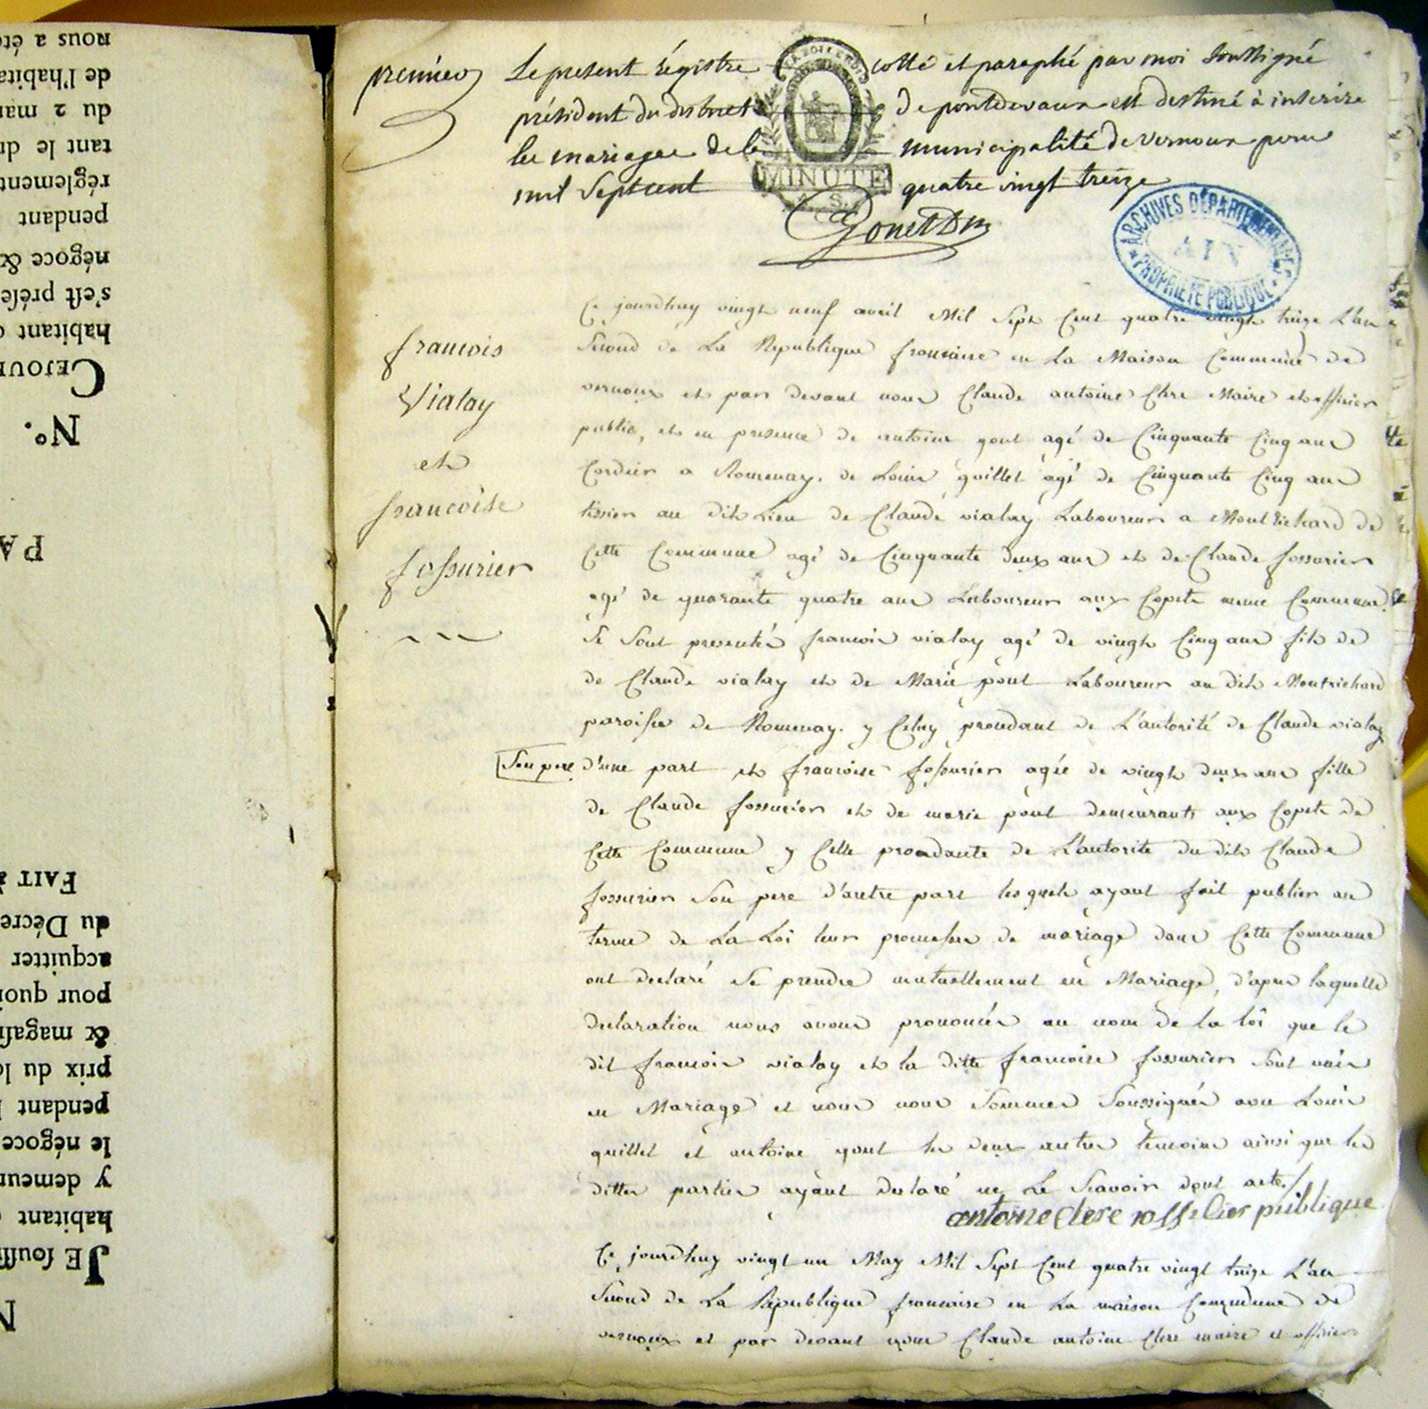 nous a été
de l'habita
du 2 mar
tant le dr
réglement
pendant
négoce &
s'eſt préſe
habitant
CEJOUR
N°.
PA
FAIT à
du Décre
acquitter
pour quoi
& magaſi
prix du lo
pendant
le négoce
y demeur
habitant
JE ſouſſi
N
premier
Le present régistre cotté et paraphé par moi soussigné
président du district de pontdevaux est destiné à inscrire
les mariages de la municipalité de vernoux pour
mil Sept cent quatre vingt treize
MINUTE
ARCHIVES DÉPARTEMENTALES
AIN
PROPRIÉTÉ PUBLIQUE
francois
Vialay
et
francoise
fossurier
Ce jourdhuy vingt neuf avril Mil Sept Cent quatre vingt treize L'an
Second de La Republique francaise en La Maison Commune de
vernoux et par devant nous Claude antoine Clere Maire et officier
public, et en presence de antoine gout agé de Cinquante Cinq ans
Cordier a Romenay, de Louis guillet agé de Cinquante Cinq ans
tissier au dit Lieu de Claude vialay Laboureur a Montrichard de
Cette Commune agé de Cinquante deux ans et de Claude fossurier
agé de quarante quatre ans Laboureur aux Copets meme Commune
Se Sont presentés francois vialay agé de vingt Cinq ans fils de
de Claude vialay et de Marie pont Laboureur au dit Montrichard
paroisse de Romenay. y Celuy procedant de L'autorité de Claude vialay
Son pere d'une part et francoise fossurier agée de vingt deux ans fille
de Claude fossurier et de marie pont demeurants aux Copets de
Cette Commune y Celle procedante de L'autorite du dit Claude
fossurier Son pere d'autre part lesquels ayant fait publier au
terme de La Loi leur promesse de mariage dans Cette Commune
ont declaré Se prendre mutuellement en Mariage, d'apres laquelle
declaration nous avons prononcés au nom de la loi que le
dit francois vialay et la ditte francoise fossurier Sont unis
en Mariage et nous nous Sommes Soussignés avec Louis
guillet et antoine gout les deux autres temoins ainsi que les
dittes parties ayant declaré ne Le Scavoir dont acte
antoine Clere officier publique
Ce jourdhuy vingt un May Mil Sept Cent quatre vingt treize L'an
Second de La Republique francaise en La maison Commune de
vernoux et par devant nous Claude antoine Clere maire et officier